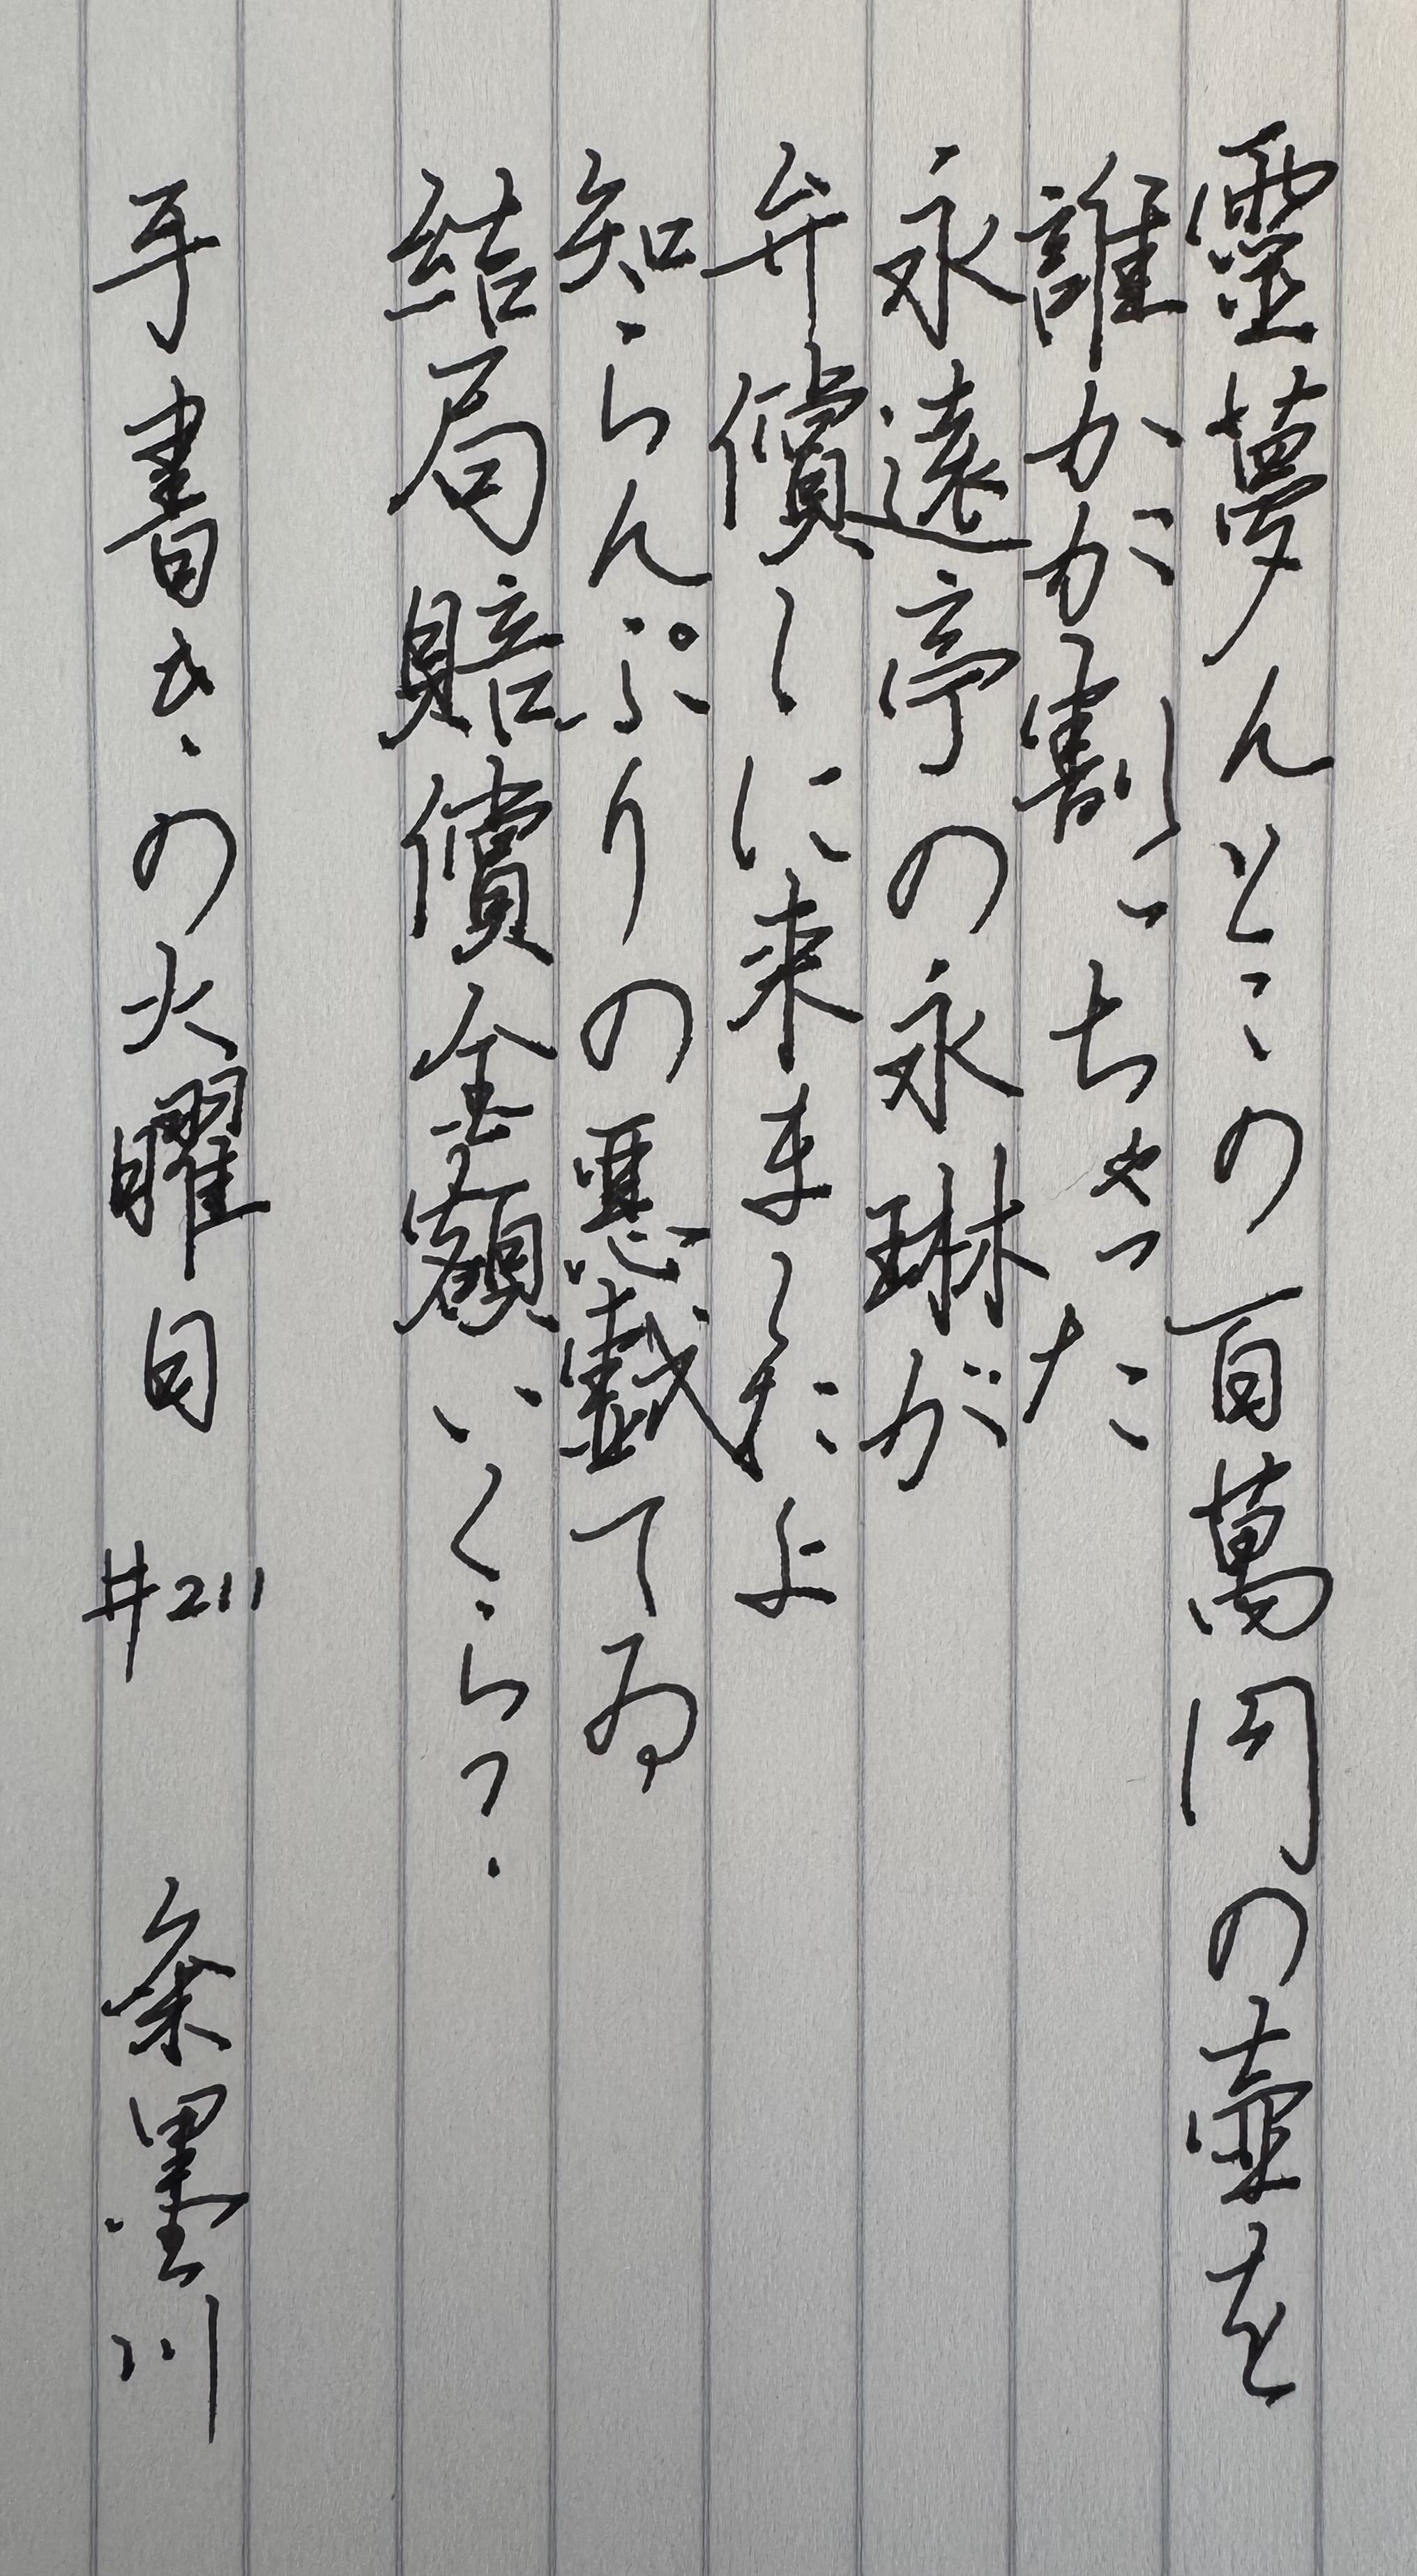 靈夢んとこの百萬円の壷を
誰かが割っちゃった
永遠亭の永琳が
弁償しに来ましたよ
知らんぷりの悪戯てゐ
結局賠償金額いくら?
手書きの火曜日 #211 条墨川